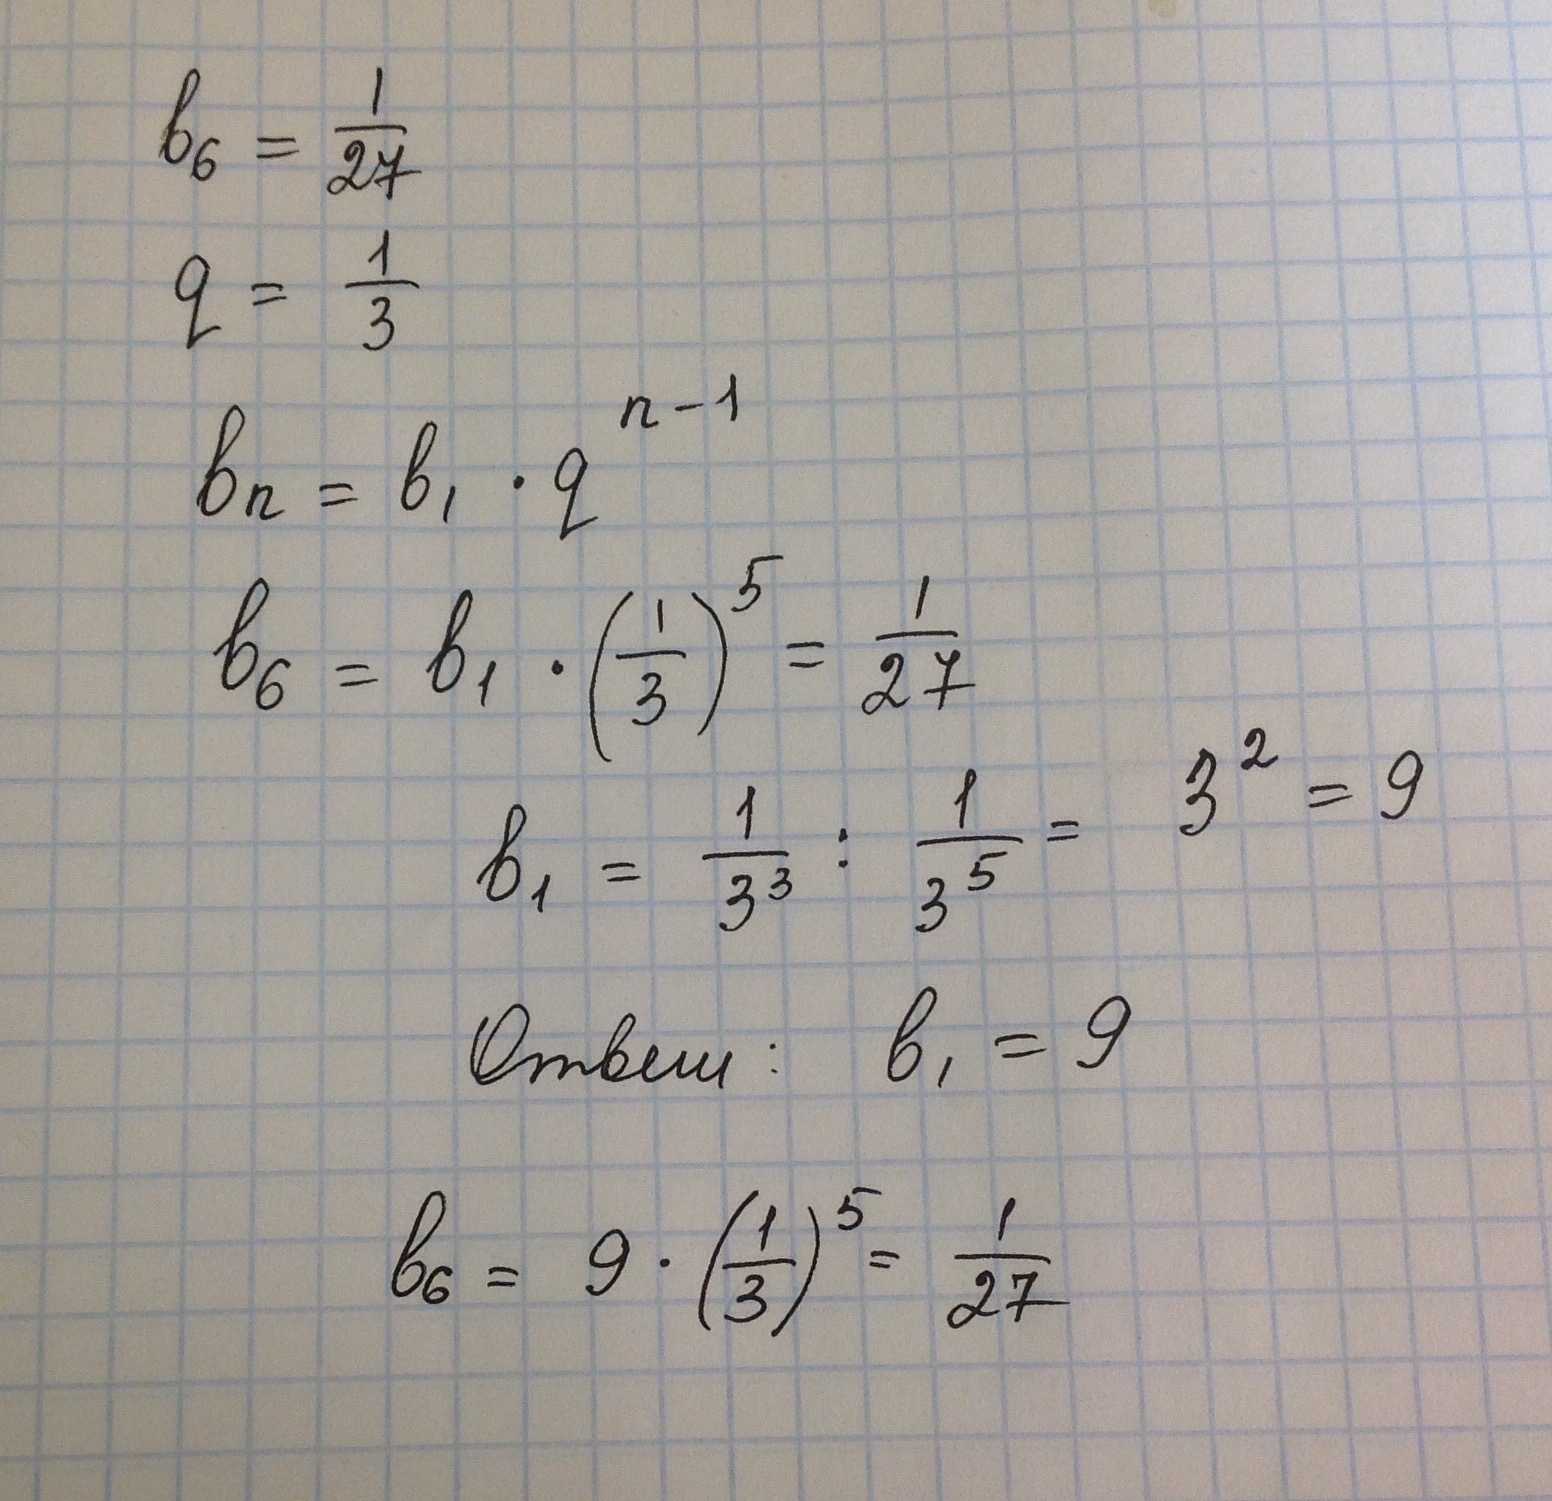 b₆ = 1/27
q = 1/3
bn = b₁ · q^(n-1)
b₆ = b₁ · (1/3)^5 = 1/27
b₁ = 1/3³ : 1/3⁵ = 3² = 9
Ответ: b₁ = 9
b₆ = 9 · (1/3)^5 = 1/27